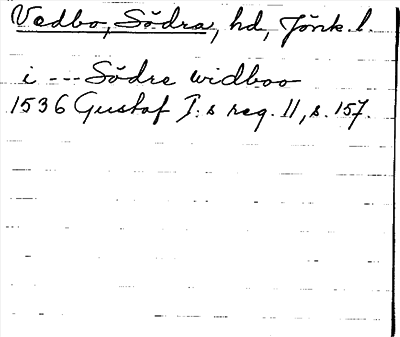 Vedbo, Södra, hd, Jönk. l.
i --- Södre widboo
1536 Gustaf I:s reg. 11, s. 157.